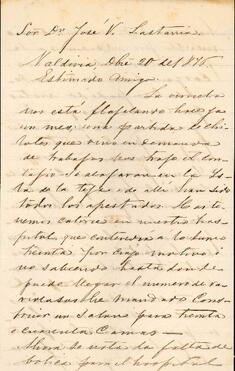 Sor Dr José V. Lastarria
Valdivia Dbe 20 de 1876.
Estimado Amigo.
La viruela
nos está flajelando hace ya
un mes, una partida de chi
lotes que vino en demanda
de trabajos nos trajo el con
tajio. Se aloparon en la Is
la de la Teja i de alli han sido
todos los apestados. Hoi te
nemos catorce en nuestro hos
pital, que contendra a lo sumo
treinta por cuyo motivo i
no sabiendo hasta donde
puede llegar el numero de va
riolados he mandado Cons
truir un Salon para treinta
o cuarenta Camas—
Ahora se nota la falta de
botica para el hospital